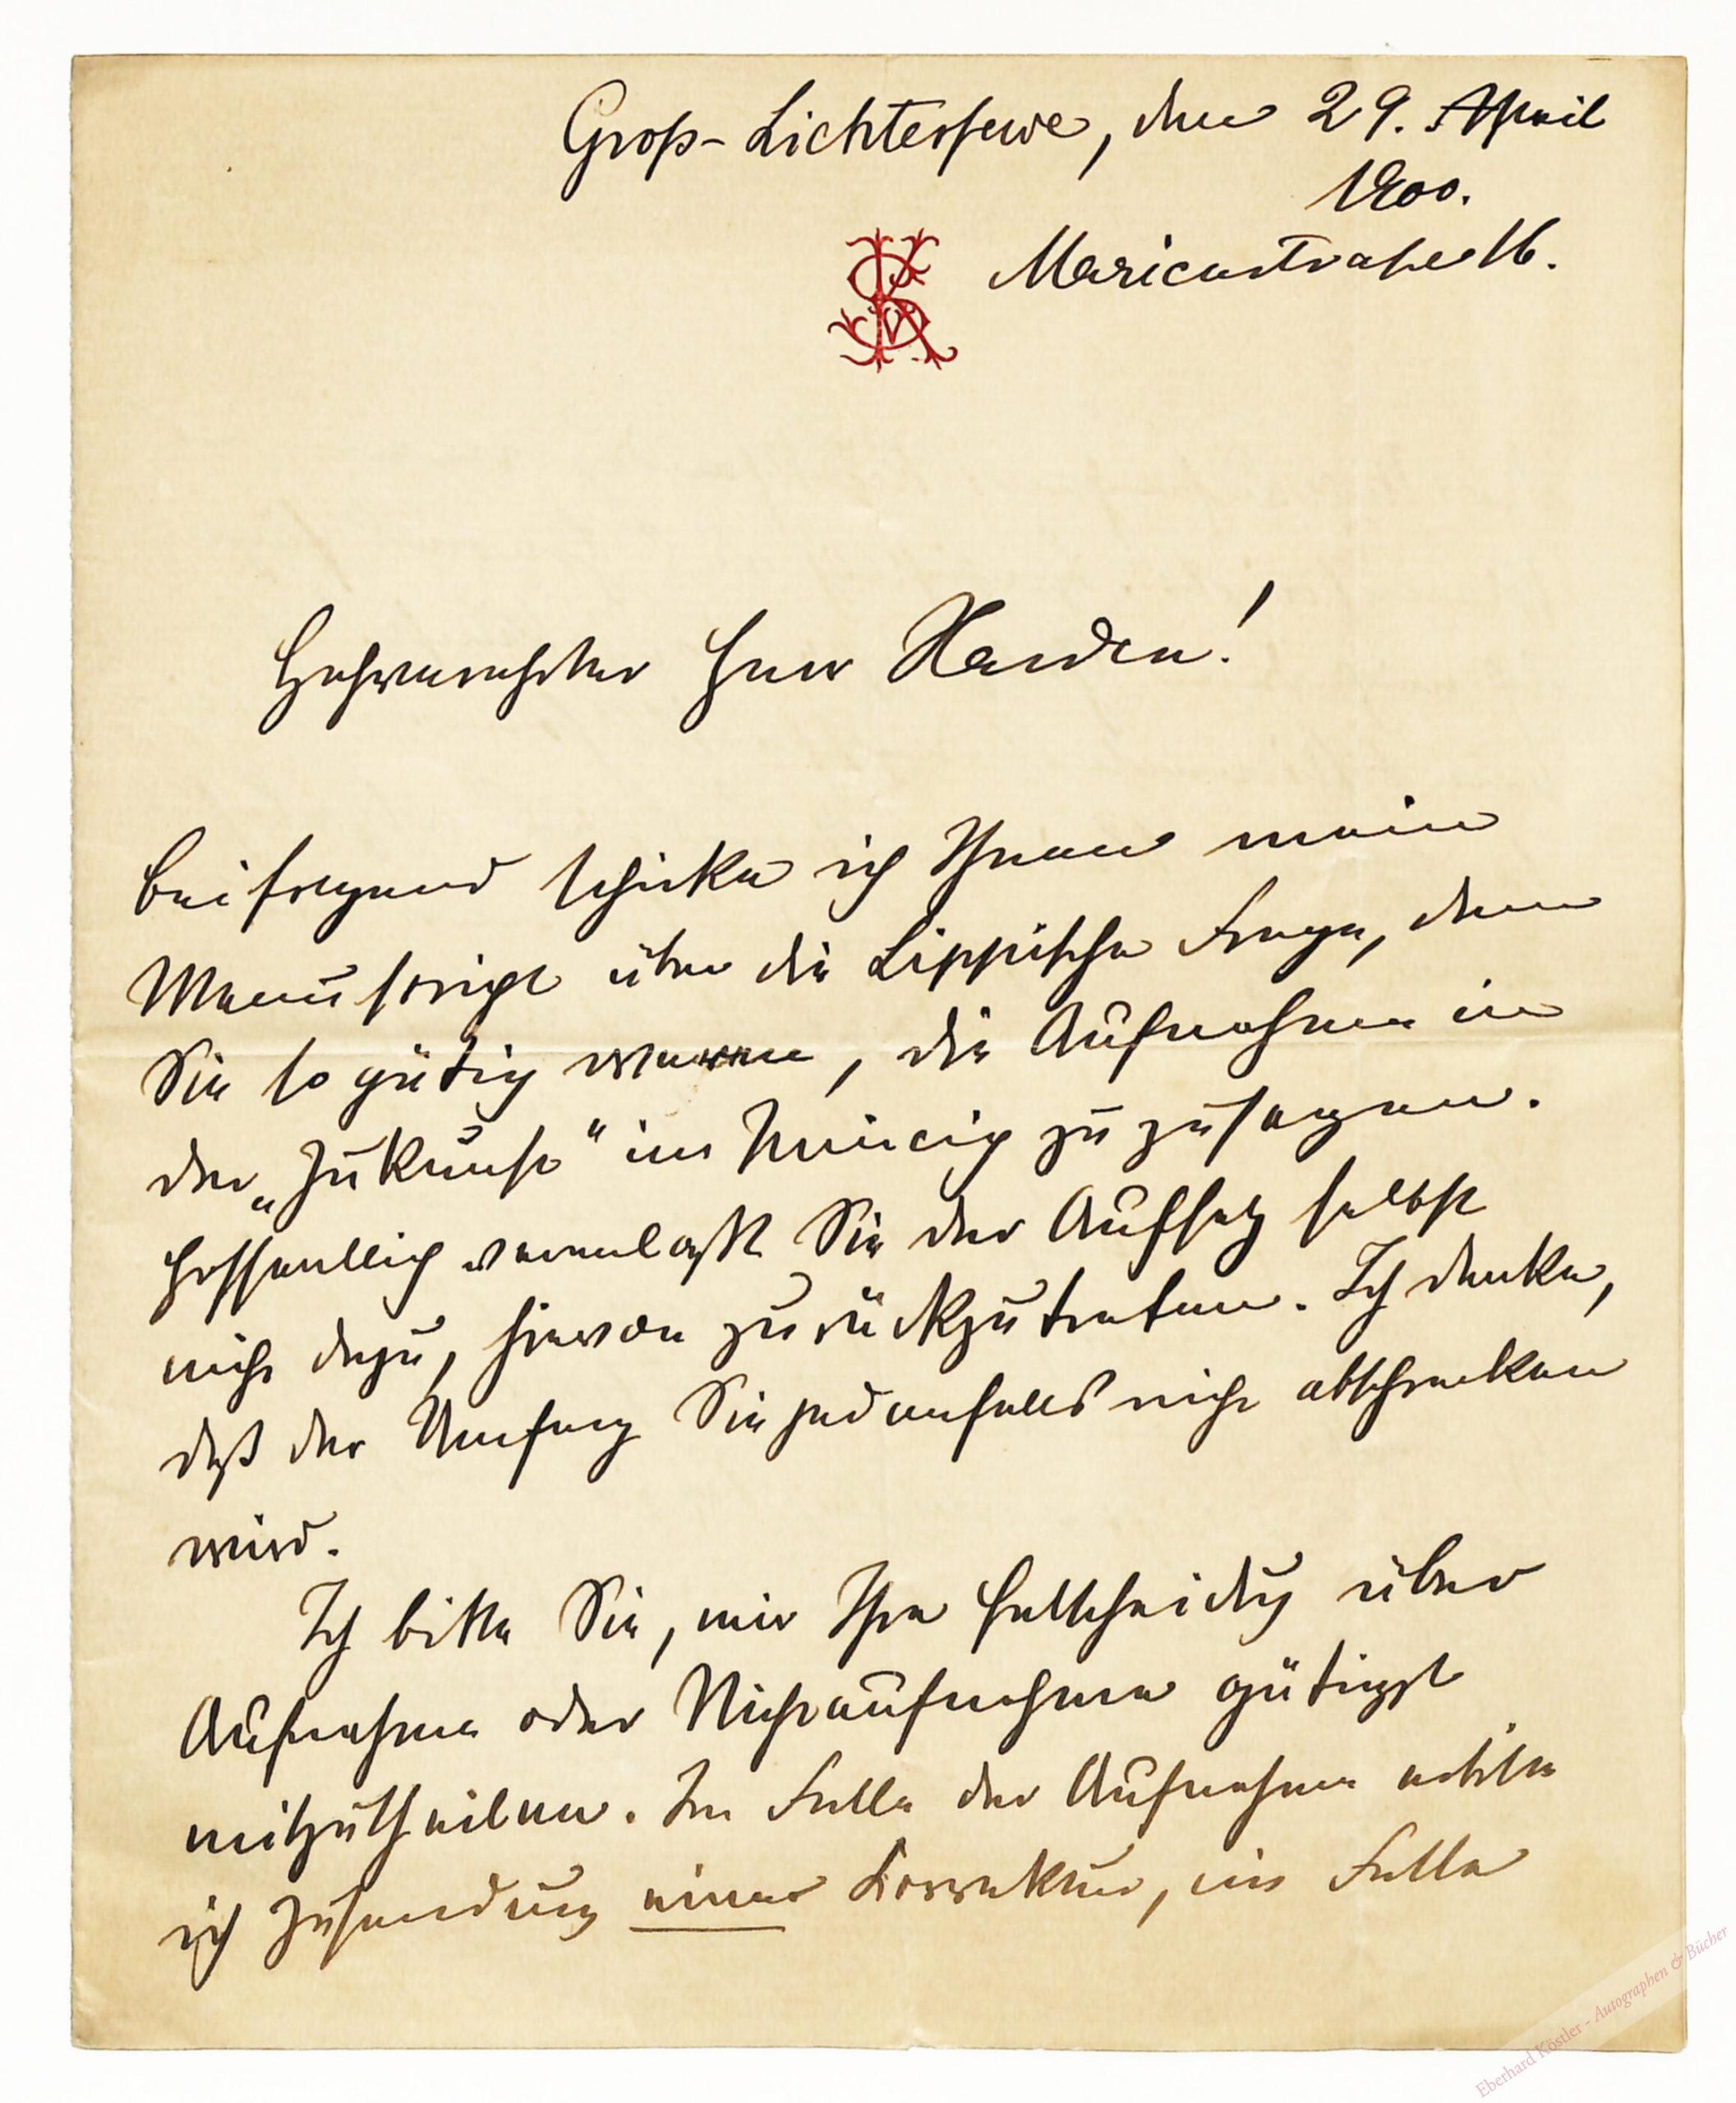 Groß-Lichterfelde, den 29. April
1900.
Marienstraße 16.
Hochverehrter Herr Harden!
Beifolgend schicke ich Ihnen mein
Manuskript über die Lippische Frage, dem
Sie so gütig waren, die Aufnahme in
der „Zukunft“ im Princip zuzusagen.
Hoffentlich veranlaßt Sie der Aufsatz selbst
nicht dazu, hiervon zurückzutreten. Ich denke,
daß der Umfang Sie jedenfalls nicht abschrecken
wird.
Ich bitte Sie, mir Ihre Entscheidg über
Aufnahme oder Nichtaufnahme gütigst
mitzutheilen. Im Falle der Aufnahme erbitte
ich Zusendung einer Korrektur, im Falle
Eberhard Köstler - Autographen & Bücher